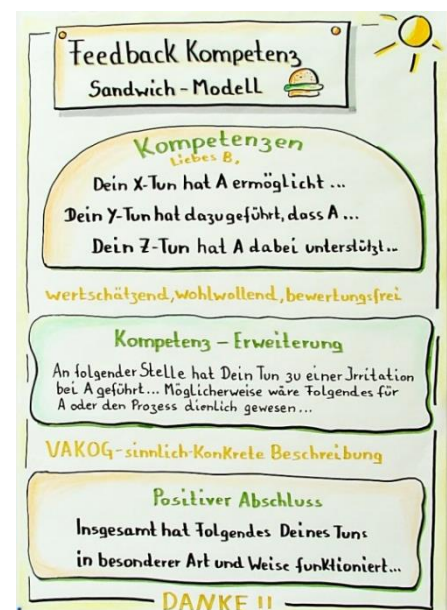 Feedback Kompetenz
Sandwich-Modell
Kompetenzen
Liebes B,
Dein X-Tun hat A ermöglicht ...
Dein Y-Tun hat dazu geführt, dass A ...
Dein Z-Tun hat A dabei unterstützt...
wertschätzend, wohlwollend, bewertungsfrei
Kompetenz - Erweiterung
An folgender Stelle hat Dein Tun zu einer Irritation
bei A geführt... Möglicherweise wäre Folgendes für
A oder den Prozess dienlich gewesen ...
VAKOG-sinnlich-Konkrete Beschreibung
Positiver Abschluss
Insgesamt hat Folgendes Deines Tuns
in besonderer Art und Weise funktioniert...
DANKE !!